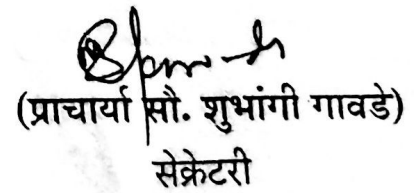 (प्राचार्या सौ. शुभांगी गावडे)
सेक्रेटरी